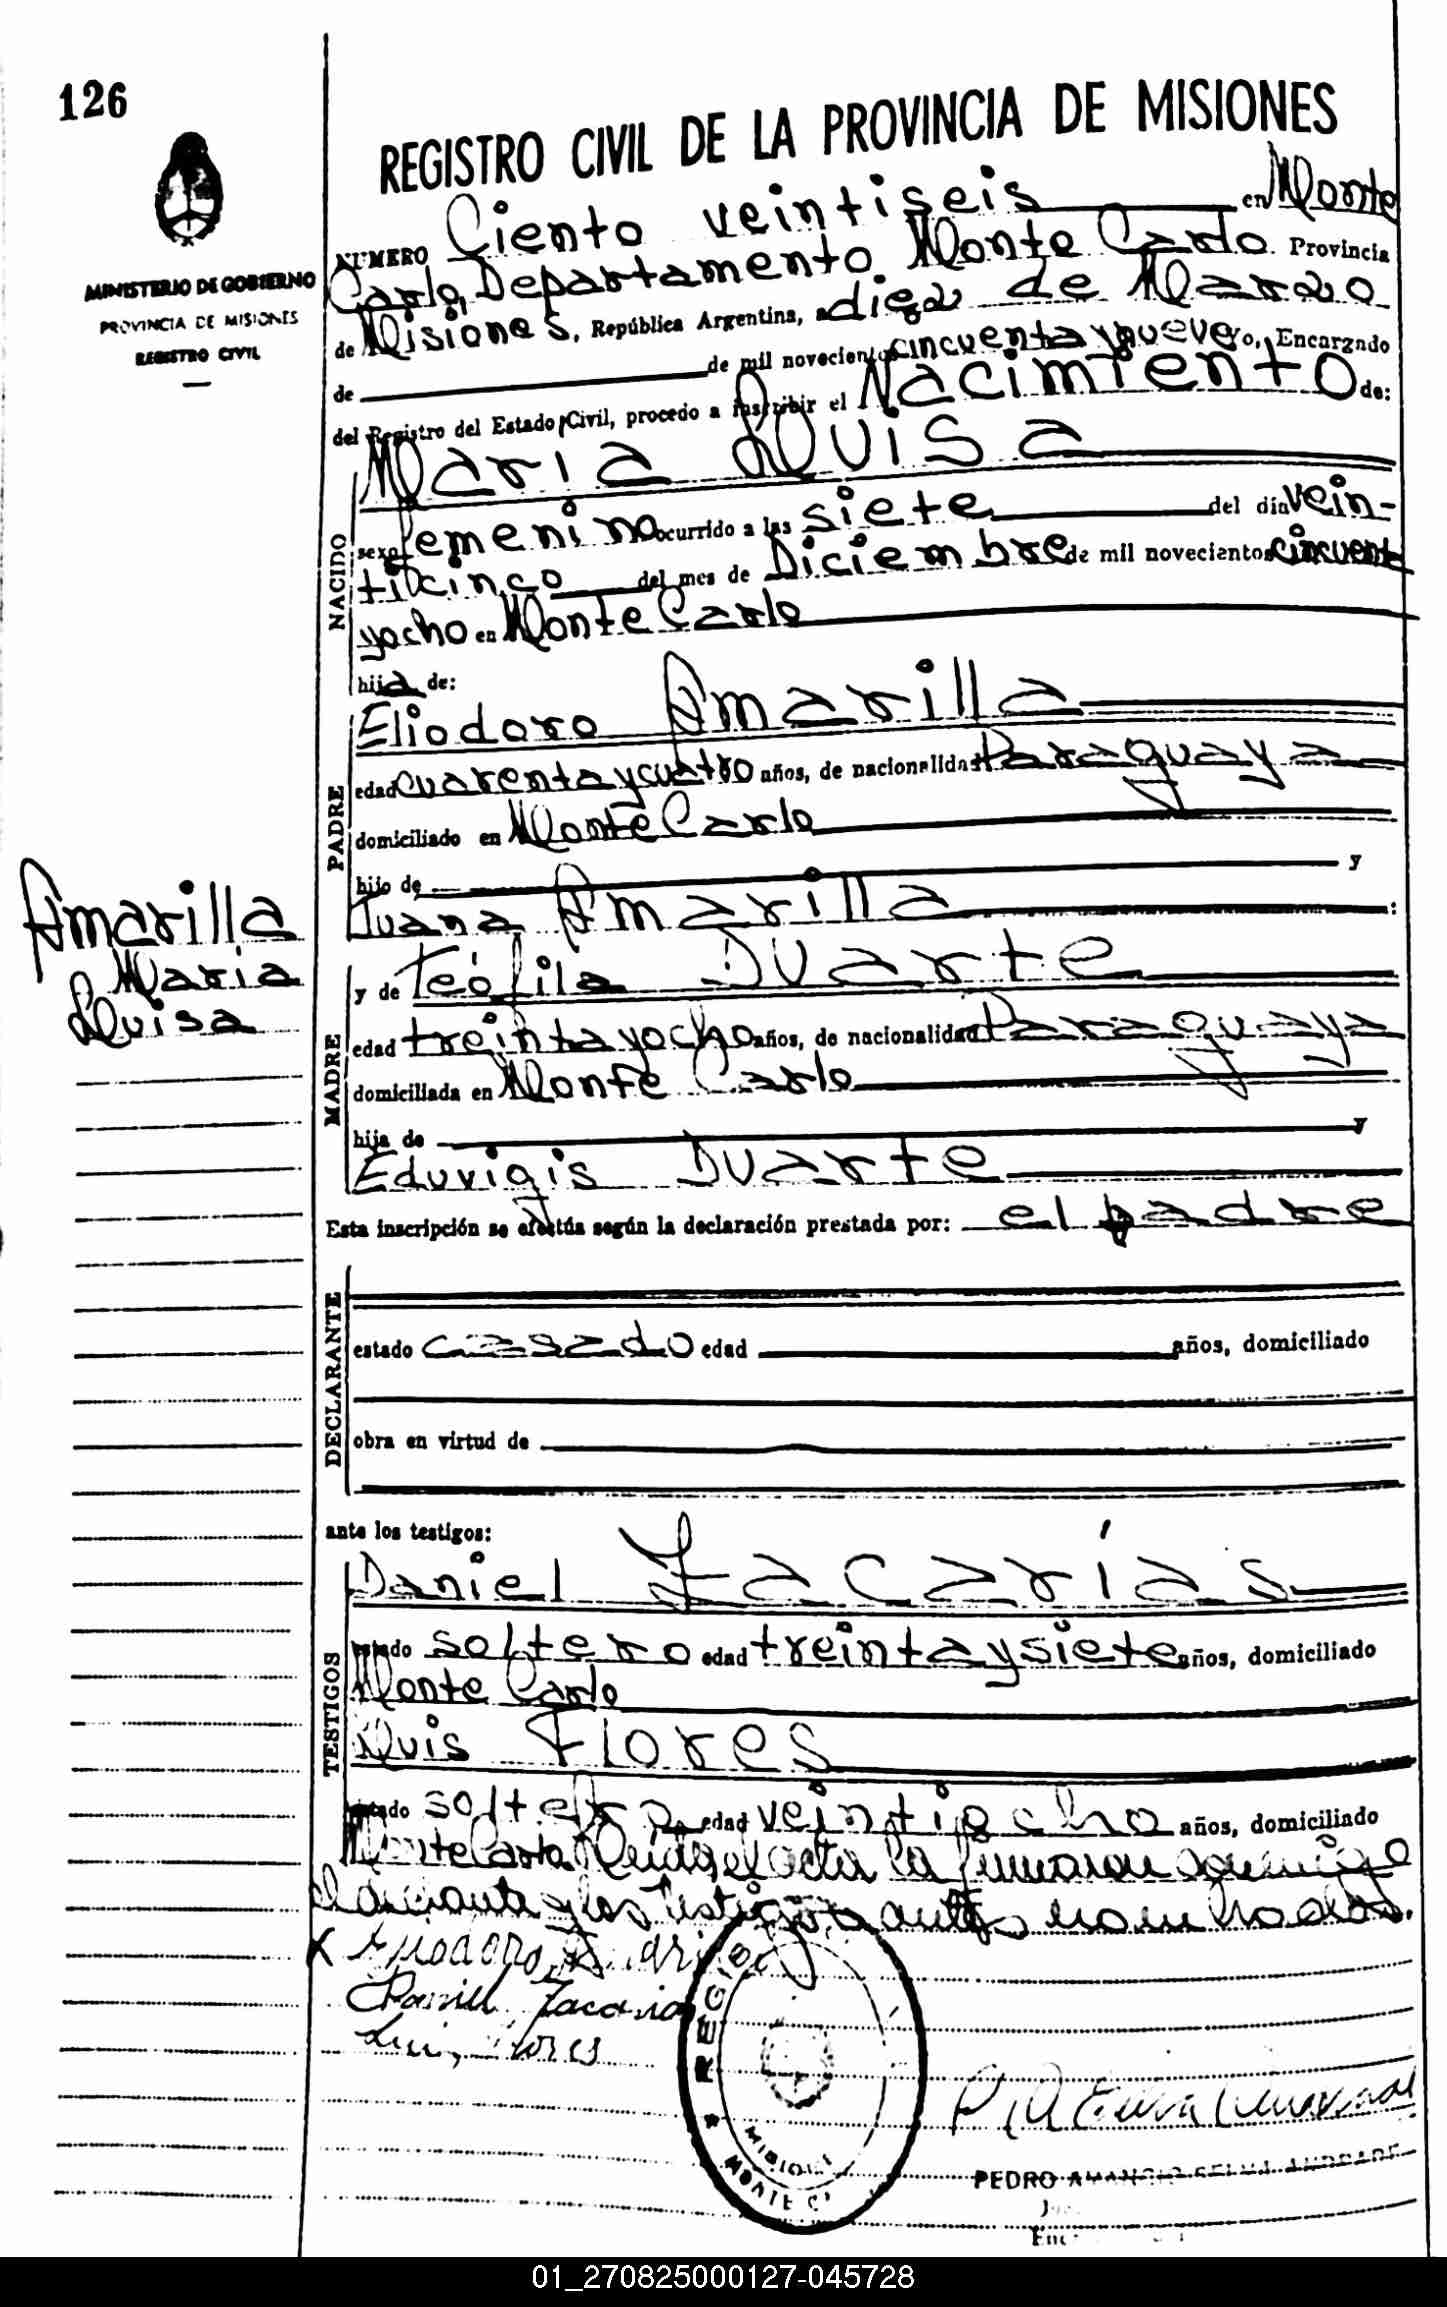 126
MINISTERIO DE GOBIERNO
PROVINCIA DE MISIONES
REGISTRO CIVIL
REGISTRO CIVIL DE LA PROVINCIA DE MISIONES
NUMERO Ciento veintiseis en Monte
Carlo, Departamento Monte Carlo Provincia
de Misiones, República Argentina, a diez de Marzo
de de mil novecientos cincuenta y nueve yo, Encargado
del Registro del Estado Civil, procedo a inscribir el Nacimiento de:
NACIDO
Maria Luisa
sexo femenino ocurrido a las siete del día vein-
ticinco del mes de Diciembre de mil novecientos cincuent
yocho en Monte Carlo
hija de:
PADRE
Eliodoro Amarilla
edad cuarenta y cuatro años, de nacionalidad Paraguaya
domiciliado en Monte Carlo
hijo de y
Juana Amarilla :
Amarilla
Maria
Luisa
MADRE
y de Teófila Duarte
edad treinta y ocho años, de nacionalidad Paraguaya
domiciliada en Monte Carlo
hija de y
Eduvigis Duarte
Esta inscripción se efectúa según la declaración prestada por: el padre
DECLARANTE
estado casado edad años, domiciliado
obra en virtud de
ante los testigos:
TESTIGOS
Daniel Zacarías
estado soltero edad treinta y siete años, domiciliado
Monte Carlo
Luis Flores
estado soltero edad veintiocho años, domiciliado
Monte Carlo. Leida el acta la firmaron conmigo
el declarante y los testigos antes nombrados.
X Eliodoro
Daniel Zacarias
Luis Flores
REGIS
MISIONES
MONTE C
PEDRO AMANCIO SELVA ANDRADE
01_270825000127-045728